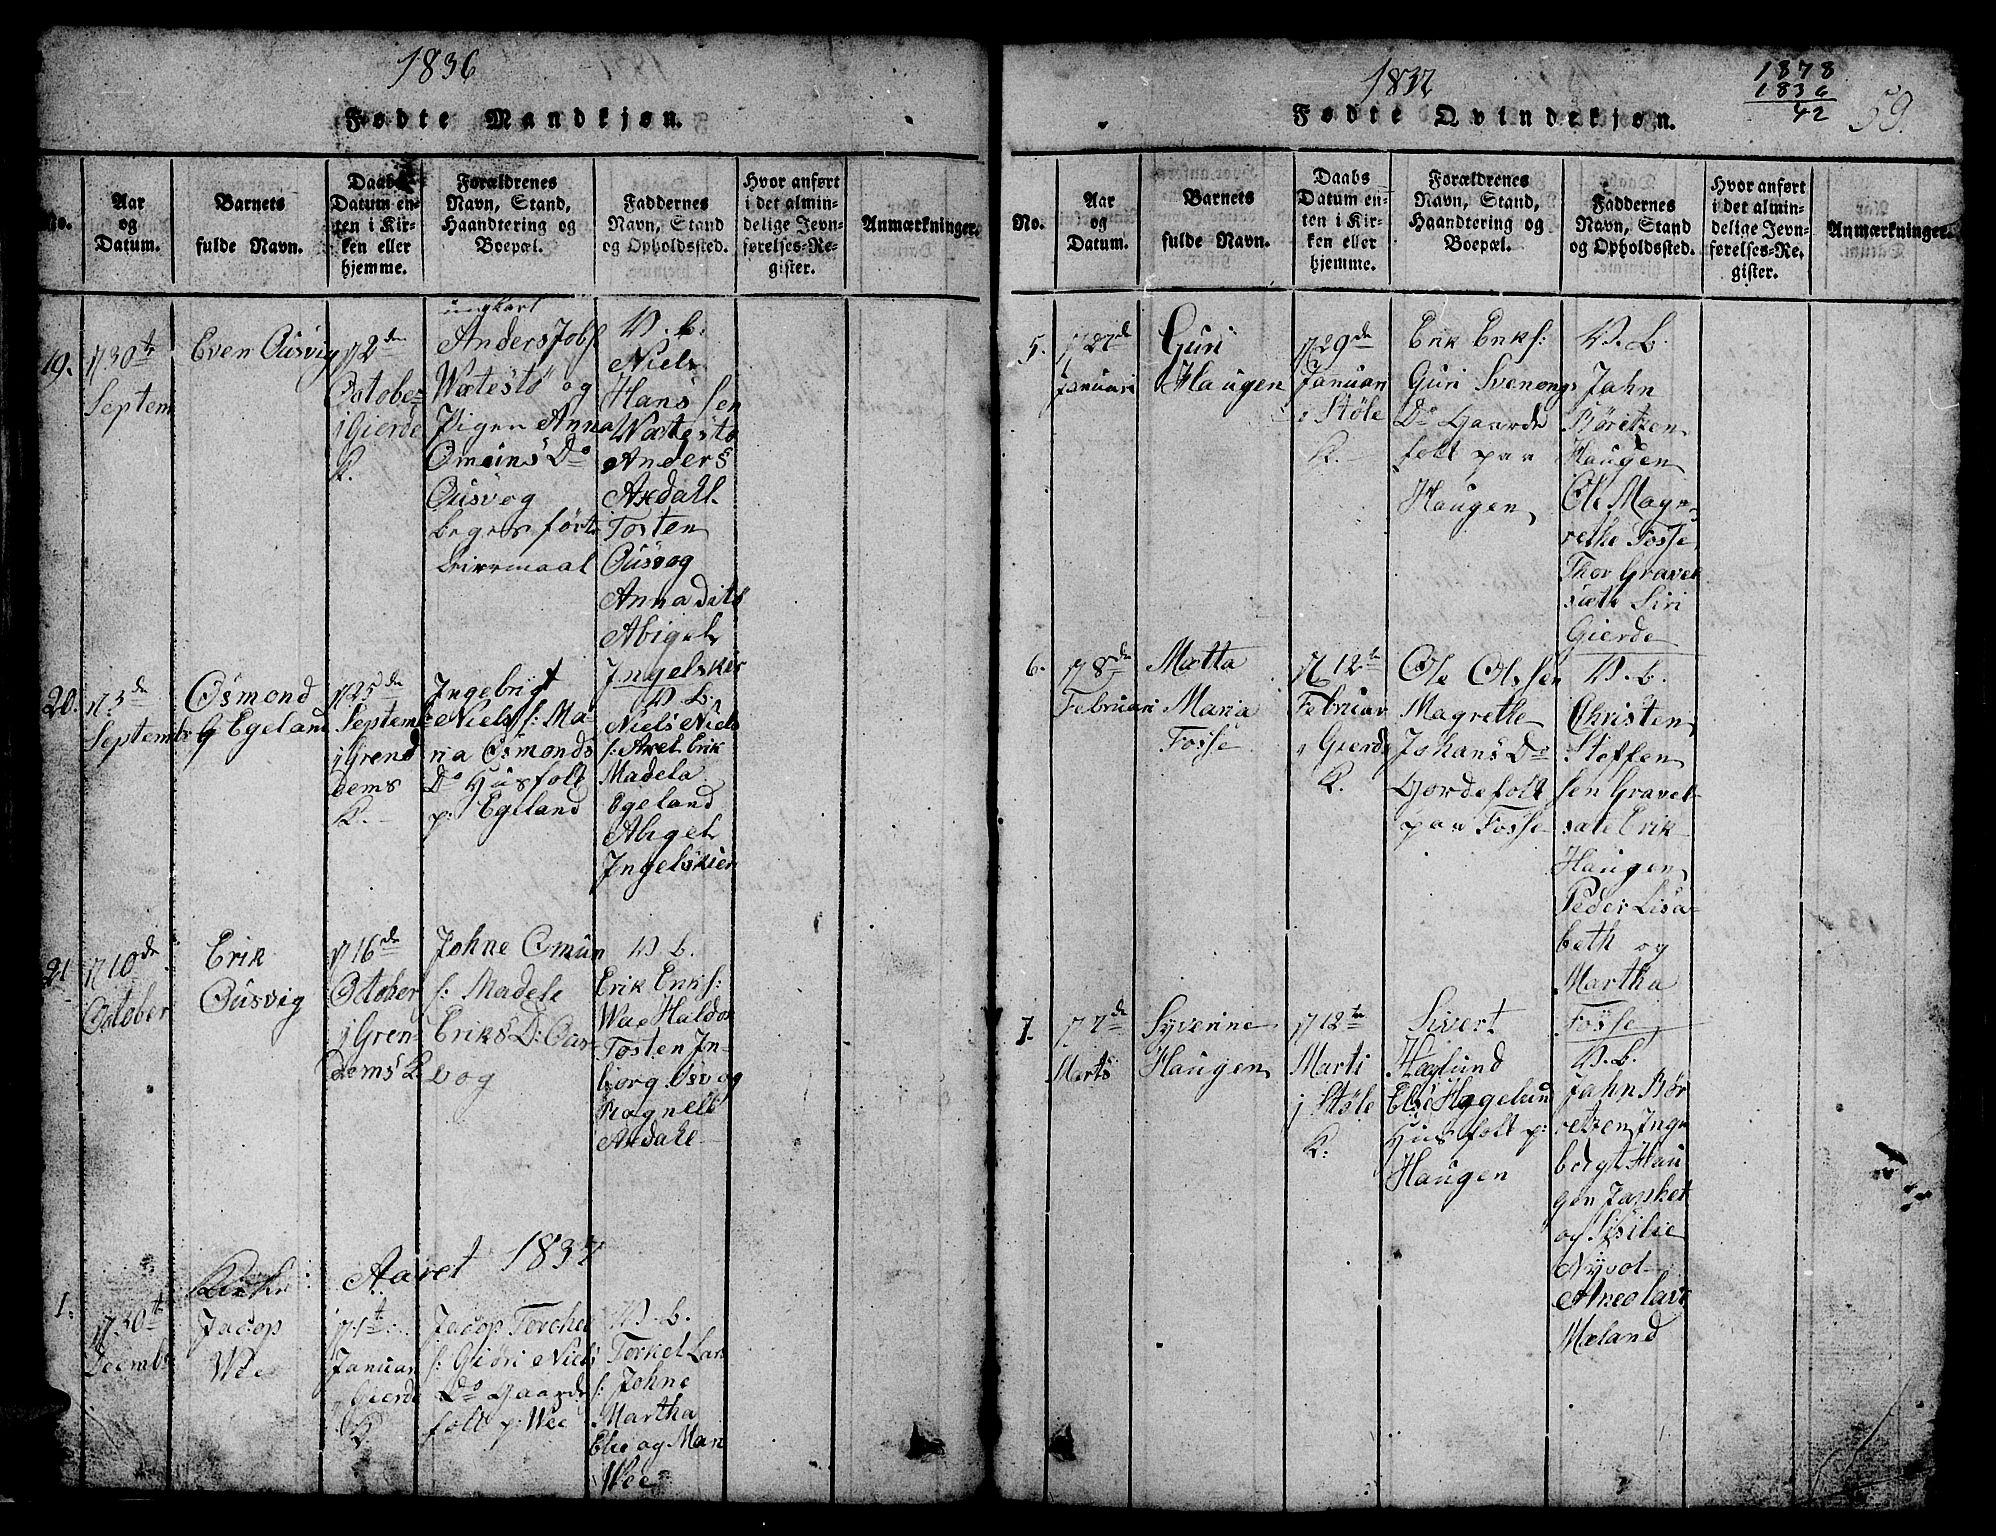 1836
Fødte Mandkjøn.
No.
Aar
og
Datum.
Barnets
fulde Navn.
Daabs
Datum en-
ten i Kir-
ken eller
hjemme.
Forældrenes
Navn, Stand,
Haandtering og
Boepæl.
Faddernes
Navn, Stand
og Opholdssted.
Hvor anført
i det almin-
delige Jevn-
førelses-Re-
gister.
Anmærkninger.
19.
30te
Septem
Even Ousvig
2den
October
j Gierde
K.
ungkarl
Anders Jobs
Watestø og
Pigen Anna
Omuns Do
Ousvog
begges første
Leiermaal
V. b.
Niels
Hanssen
Watestø
Anders
Axdahl
Tosten
Ousvog
Anna dito
Abigel
Ingelskier
20.
3de
Septembr
Osmond
Egeland
25de
Septemb
j Grin
dems
K.
Ingebrigt
Niels s: Ma-
ria Osmonds
Do Husfolk
p: Egeland
V. b.
Niels Niels
s: Axel Erik
Madela
Egeland
Abigel
Ingelskier
21
10de
October
Erik
Ousvig
16de
October
j Gren-
dems K
Johne Omun
s: Madele
Eriks D: Ous-
vog
V. b.
Erik Eriks:
Wae Haldor
Tosten In-
bjorg Osvog
Ragnele
Axdahl
Aaret 1837
1.
30te
Decemb
Jacop
Wee
1te
Januar
j Gierde
K
Jacop Torchel
s: Giøri Niels
Do Gaards
folk p: Wee
V. b.
Torkel Lar
s: Johne
Martha
Elie og Mari
Wee
1837
Fødte Qvindekjøn.
1878
1836
42
59.
No.
Aar
og
Datum.
Barnets
fulde Navn.
Daabs
Datum en-
ten i Kir-
ken eller
hjemme.
Forældrenes
Navn, Stand,
Haandtering og
Boepæl.
Faddernes
Navn, Stand
og Opholdssted.
Hvor anført
i det almin-
delige Jevn-
førelses-Re-
gister.
Anmærkninger.
5.
27de
Januari
Guri
Haugen
29de
Januari
i Støle
K.
Erik Eriks:
Guri Svenongs
Do Gaarde
folk paa
Haugen
V. b.
Jahn
Børitzen
Haugen
Ole Mag-
rethe Fosse
Thor Gravel
sæte Siri
Gierde
6.
8de
Februari
Mætta
Maria
Fosse
12te
Februar
j Gierde
K.
Ole Olssen
Magrethe
Johans Do
Gordefolk
paa Fosse
V. b.
Christen
Steffen
sen Gravel
sate Erik
Haugen
Peder Lisa-
beth og
Martha
Fosse
7.
7de
Marts
Syverine
Haugen
12te
Marti
j Støle
K.
Sivert
Haglund
Else Hagelun
Husfolk p:
Haugen
V. b.
Jahn Bør
retzen Inge
borgt Hau
gen
og Sisilie
Nyvol
Mæland